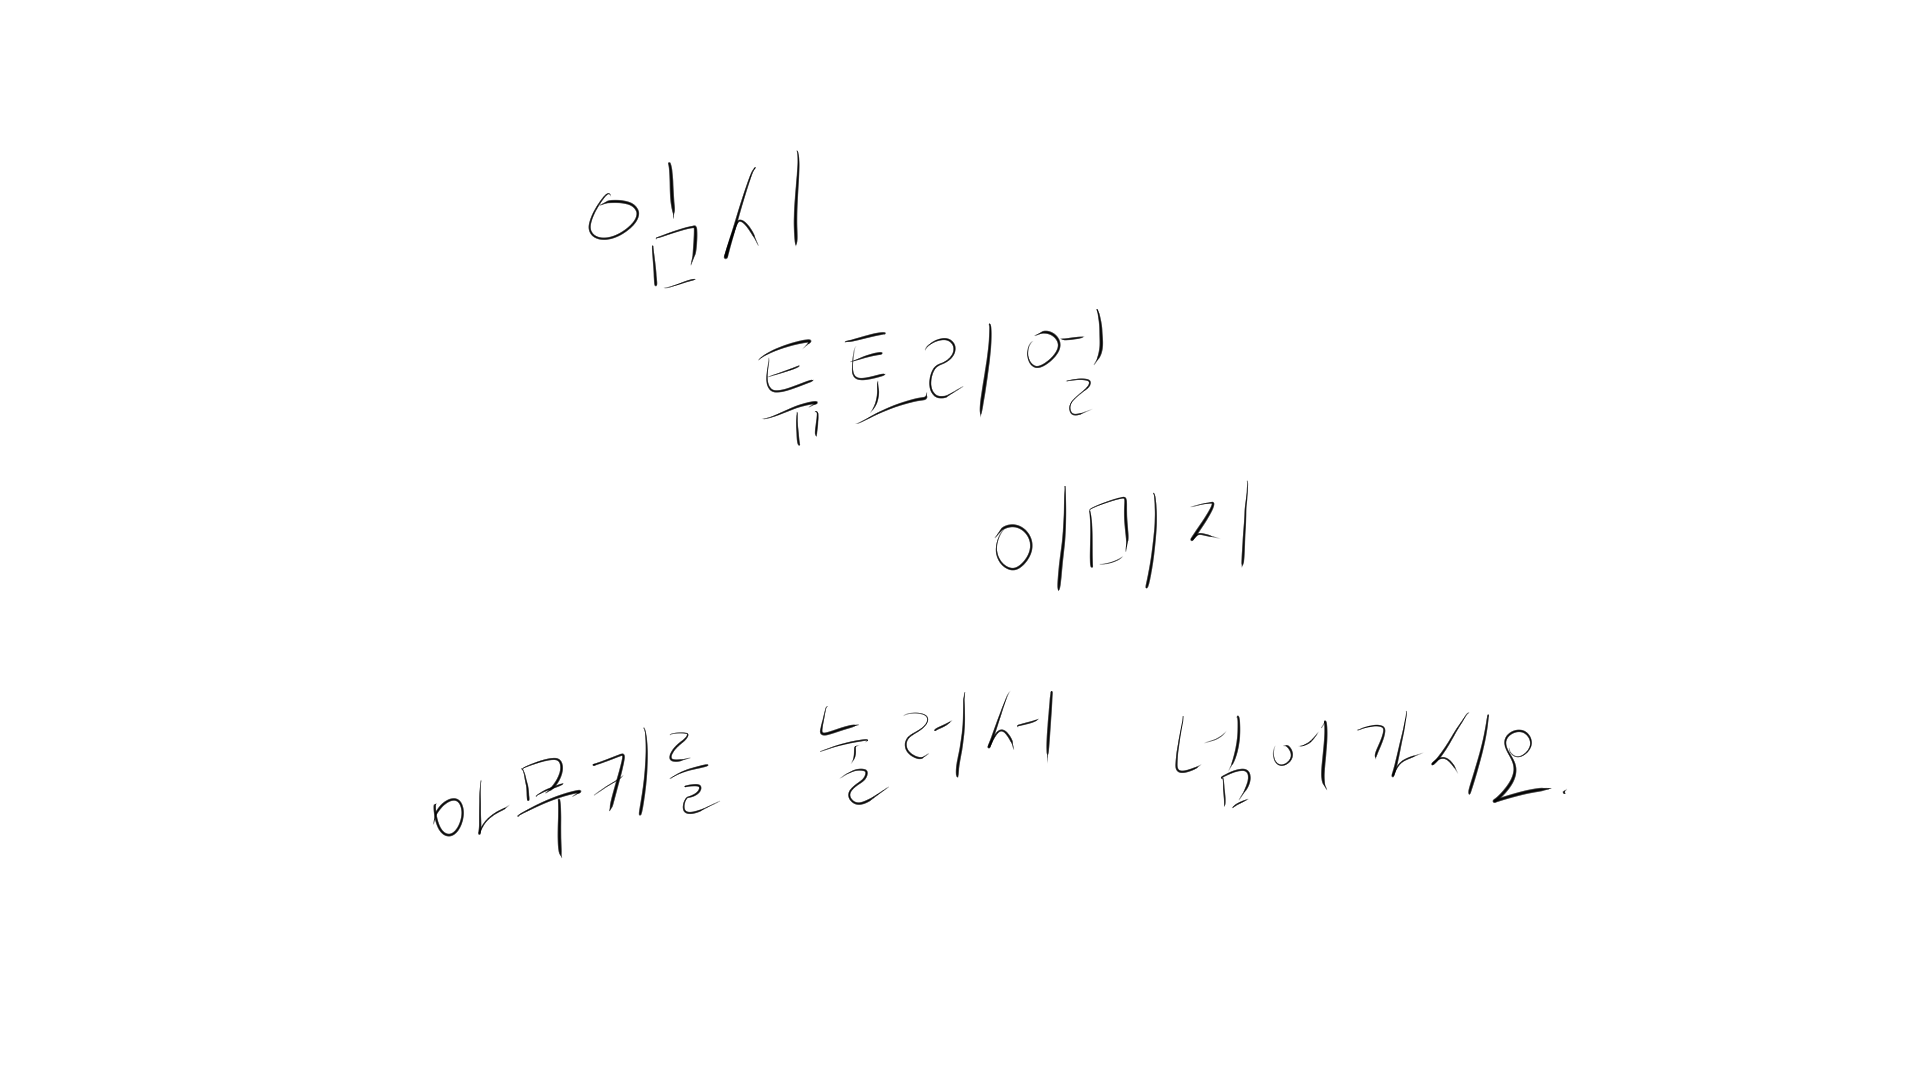 임시
튜토리얼
이미지
아무키를 눌러서 넘어가시오.